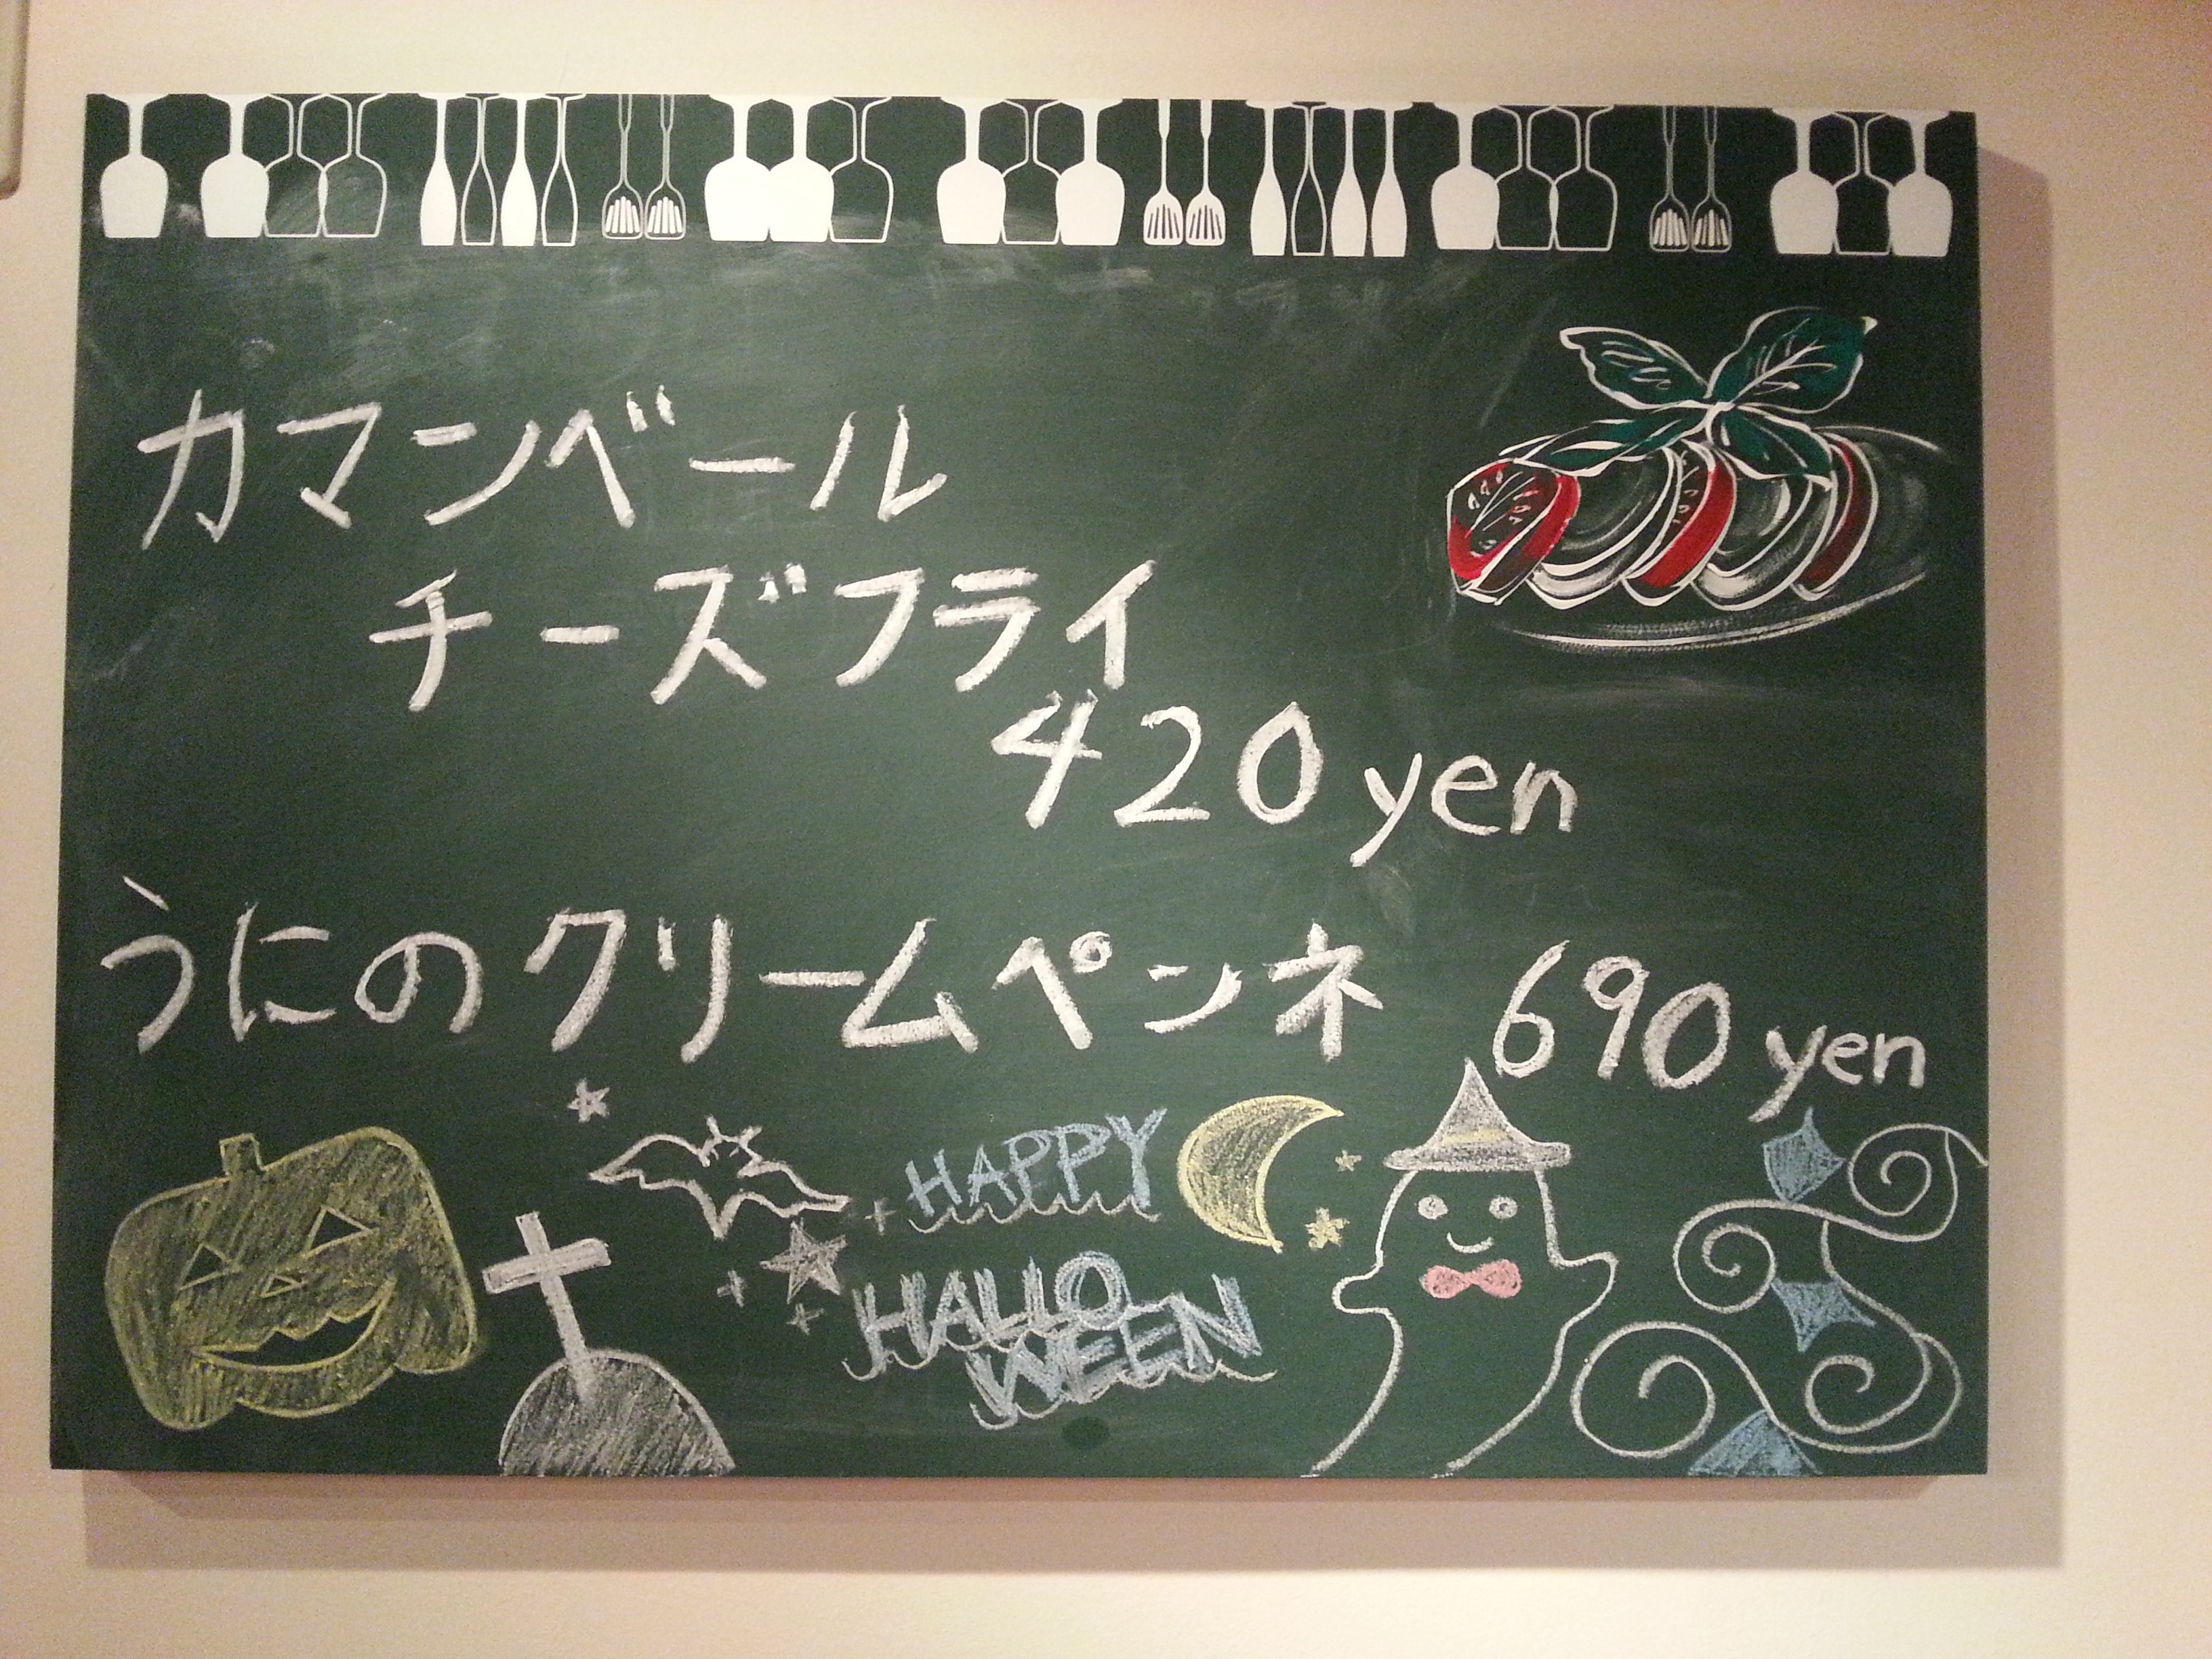 カマンベール
チーズフライ
420yen
うにのクリームペンネ 690yen
HAPPY
HALLO
WEEN